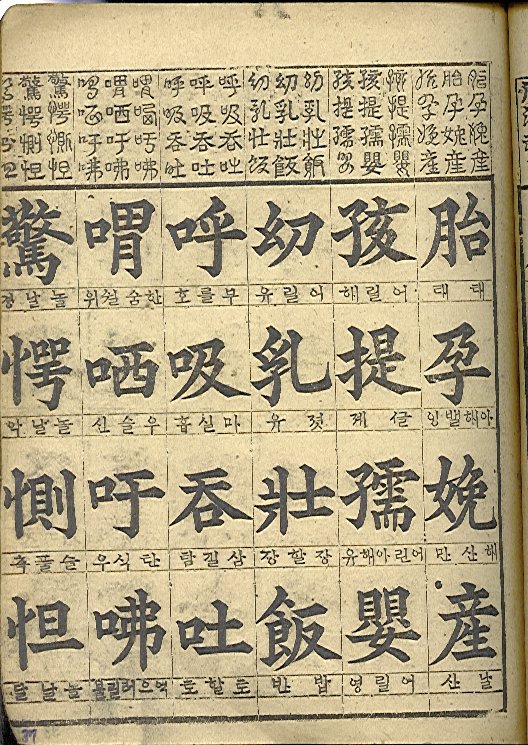 胎孕娩産
胎孕娩産
胎孕娩産
孩提孺嬰
孩提孺嬰
孩提孺嬰
幼乳壯飯
幼乳壯飯
幼乳壯飯
呼吸呑吐
呼吸呑吐
呼吸呑吐
喟哂吁咈
喟哂吁咈
喟哂吁咈
驚愕惻怛
驚愕惻怛
驚愕惻怛
胎
태 태
孕
아해밸 잉
娩
해산 만
産
날 산
孩
어릴 해
提
제
孺
어린아해 유
嬰
어릴 영
幼
어릴 유
乳
젓 유
壯
장할 장
飯
밥 반
呼
호
吸
마실 흡
呑
삼길
吐
토할 토
喟
한숨쉴 위
哂
우슬 신
吁
탄식 우
咈
驚
놀날 경
愕
놀날 악
惻
슬풀 측
怛
놀날 달
37